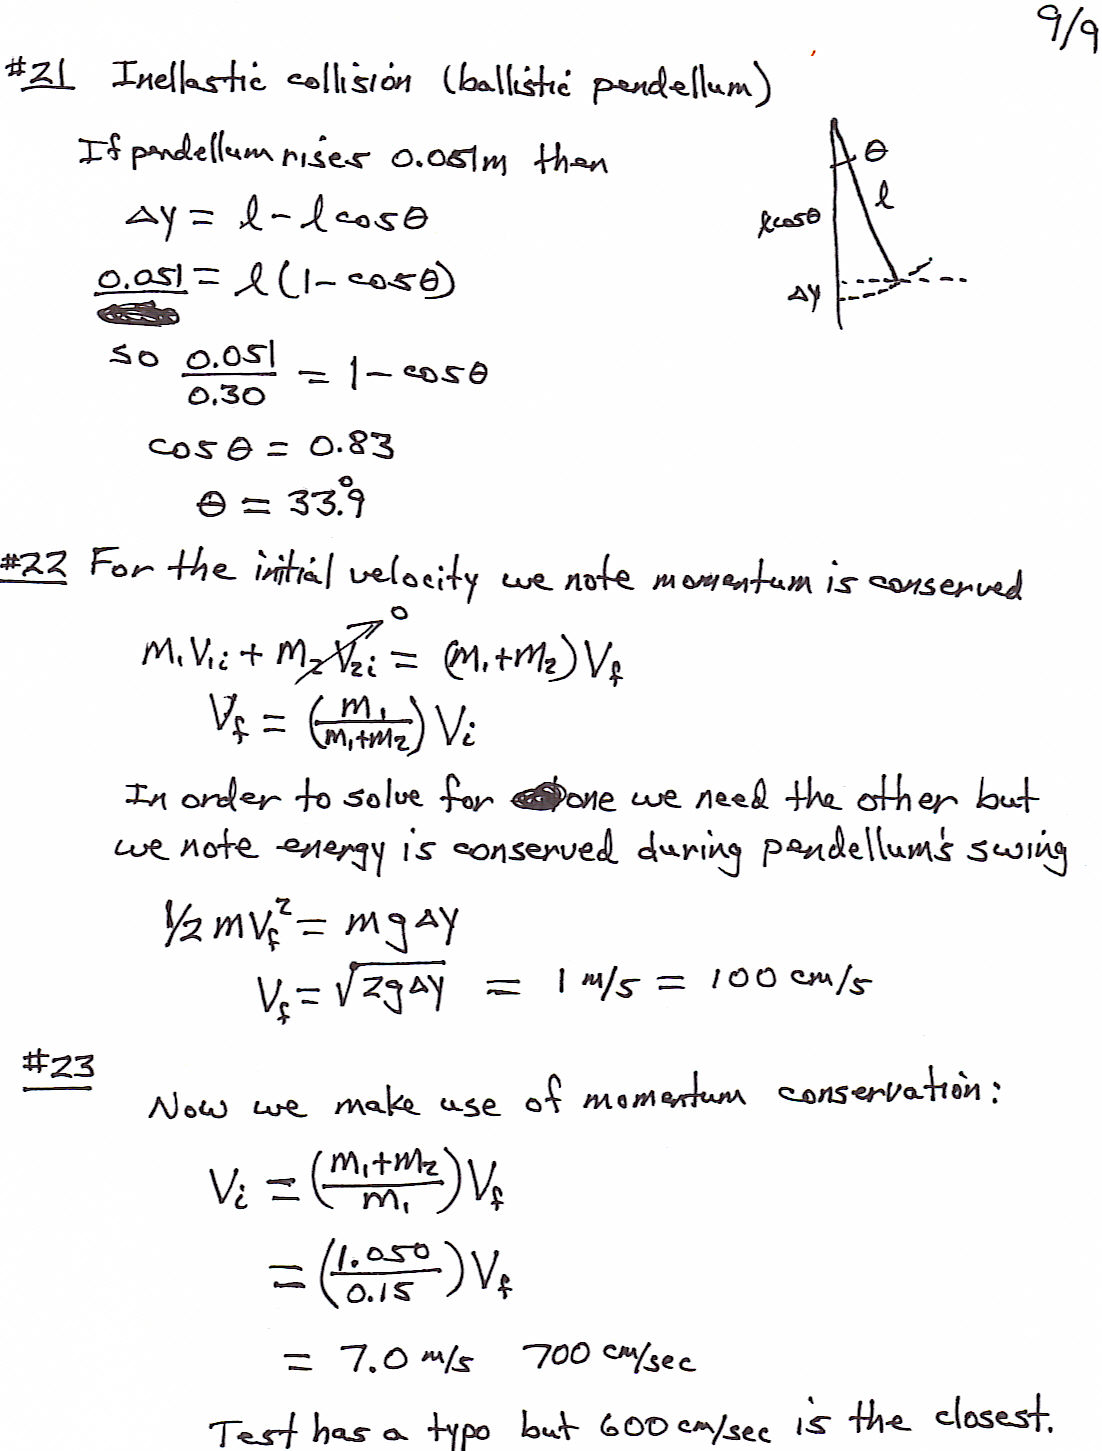 9/9
#21 Inellastic collision (ballistic pendellum)
If pendellum rises 0.051m then
Δy = l - l cosθ
0.051 = l(1 - cosθ)
so 0.051/0.30 = 1 - cosθ
cosθ = 0.83
θ = 33.9°
θ
l
lcosθ
Δy
#22 For the initial velocity we note momentum is conserved
m₁V₁ᵢ + m₂V₂ᵢ = (m₁+m₂)V_f
0
V_f = (m₁/(m₁+m₂)) Vᵢ
In order to solve for one we need the other but
we note energy is conserved during pendellum's swing
1/2 mV_f² = mgΔy
V_f = √2gΔy = 1 m/s = 100 cm/s
#23
Now we make use of momentum conservation:
Vᵢ = ((m₁+m₂)/m₁) V_f
= (1.050/0.15) V_f
= 7.0 m/s 700 cm/sec
Test has a typo but 600 cm/sec is the closest.